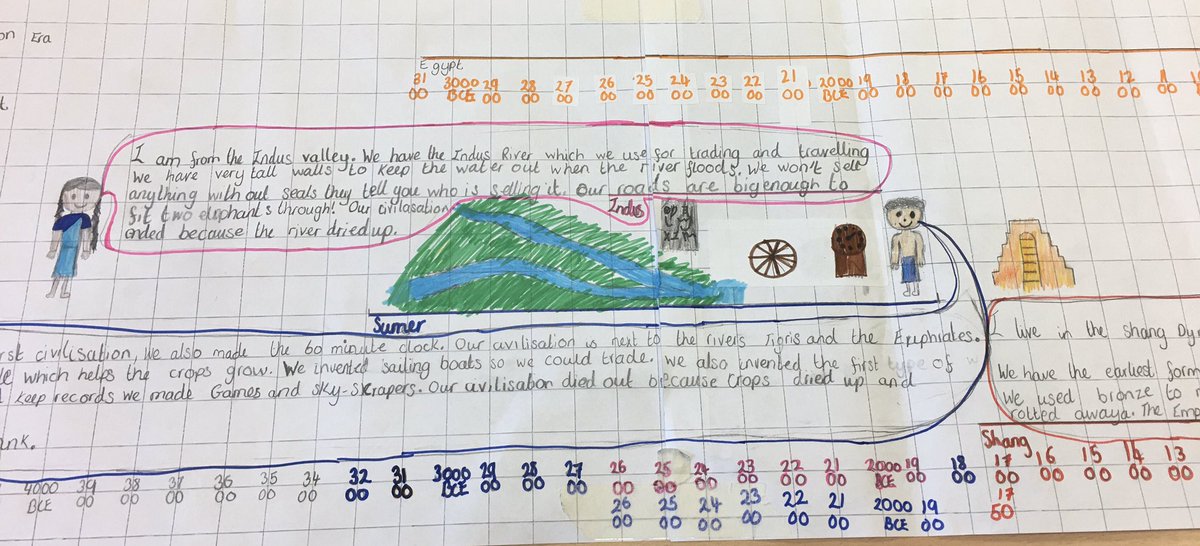 on Era
Egypt
31 3000 29 28 27 26 25 24 23 22 21 2000 19 18 17 16 15 14 13 12 11
00 BCE 00 00 00 00 00 00 00 00 00 BCE 00 00 00 00 00 00 00 00 00
I am from the Indus valley. We have the Indus River which we use for trading and travelling
We have very tall walls to keep the water out when the river floods. We won't sell
anything with out seals they tell you who is selling it. Our roads are big enough to
fit two elephants through! Our civilasation
ended because the river dried up.
Indus
Sumer
rst civilisation, we also made the 60 minute clock. Our civilisation is next to the rivers Tigris and the Eruphiates.
which helps the crops grow. We invented sailing boats so we could trade. we also invented the first type of w
keep records we made Games and sky-skrapers. Our civilisation died out because crops dried up and
ank.
I live in the shang Dy
We have the earliest form
we used bronze to
rotted awaya. The Emp
Shang
4000 39 38 37 36 35 34 32 31 3000 29 28 27 26 25 24 23 22 21 2000 19 18 17 16 15 14 13
BCE 00 00 00 00 00 00 00 00 BCE 00 00 00 00 00 00 00 00 00 BCE 00 00 00 00 00 00 00
26 25 24 23 22 21 2000 19 17
00 00 00 00 00 00 BCE 00 50